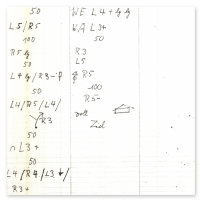 50
L5/R5
100
R5
50
L4 /R3
50
L4/R5/L4/
R3
50
∩L3+
50
L4/R4/L3
R3+
WE L4+
WA L3+
50
R3
L5
R5
100
R5-
Ziel